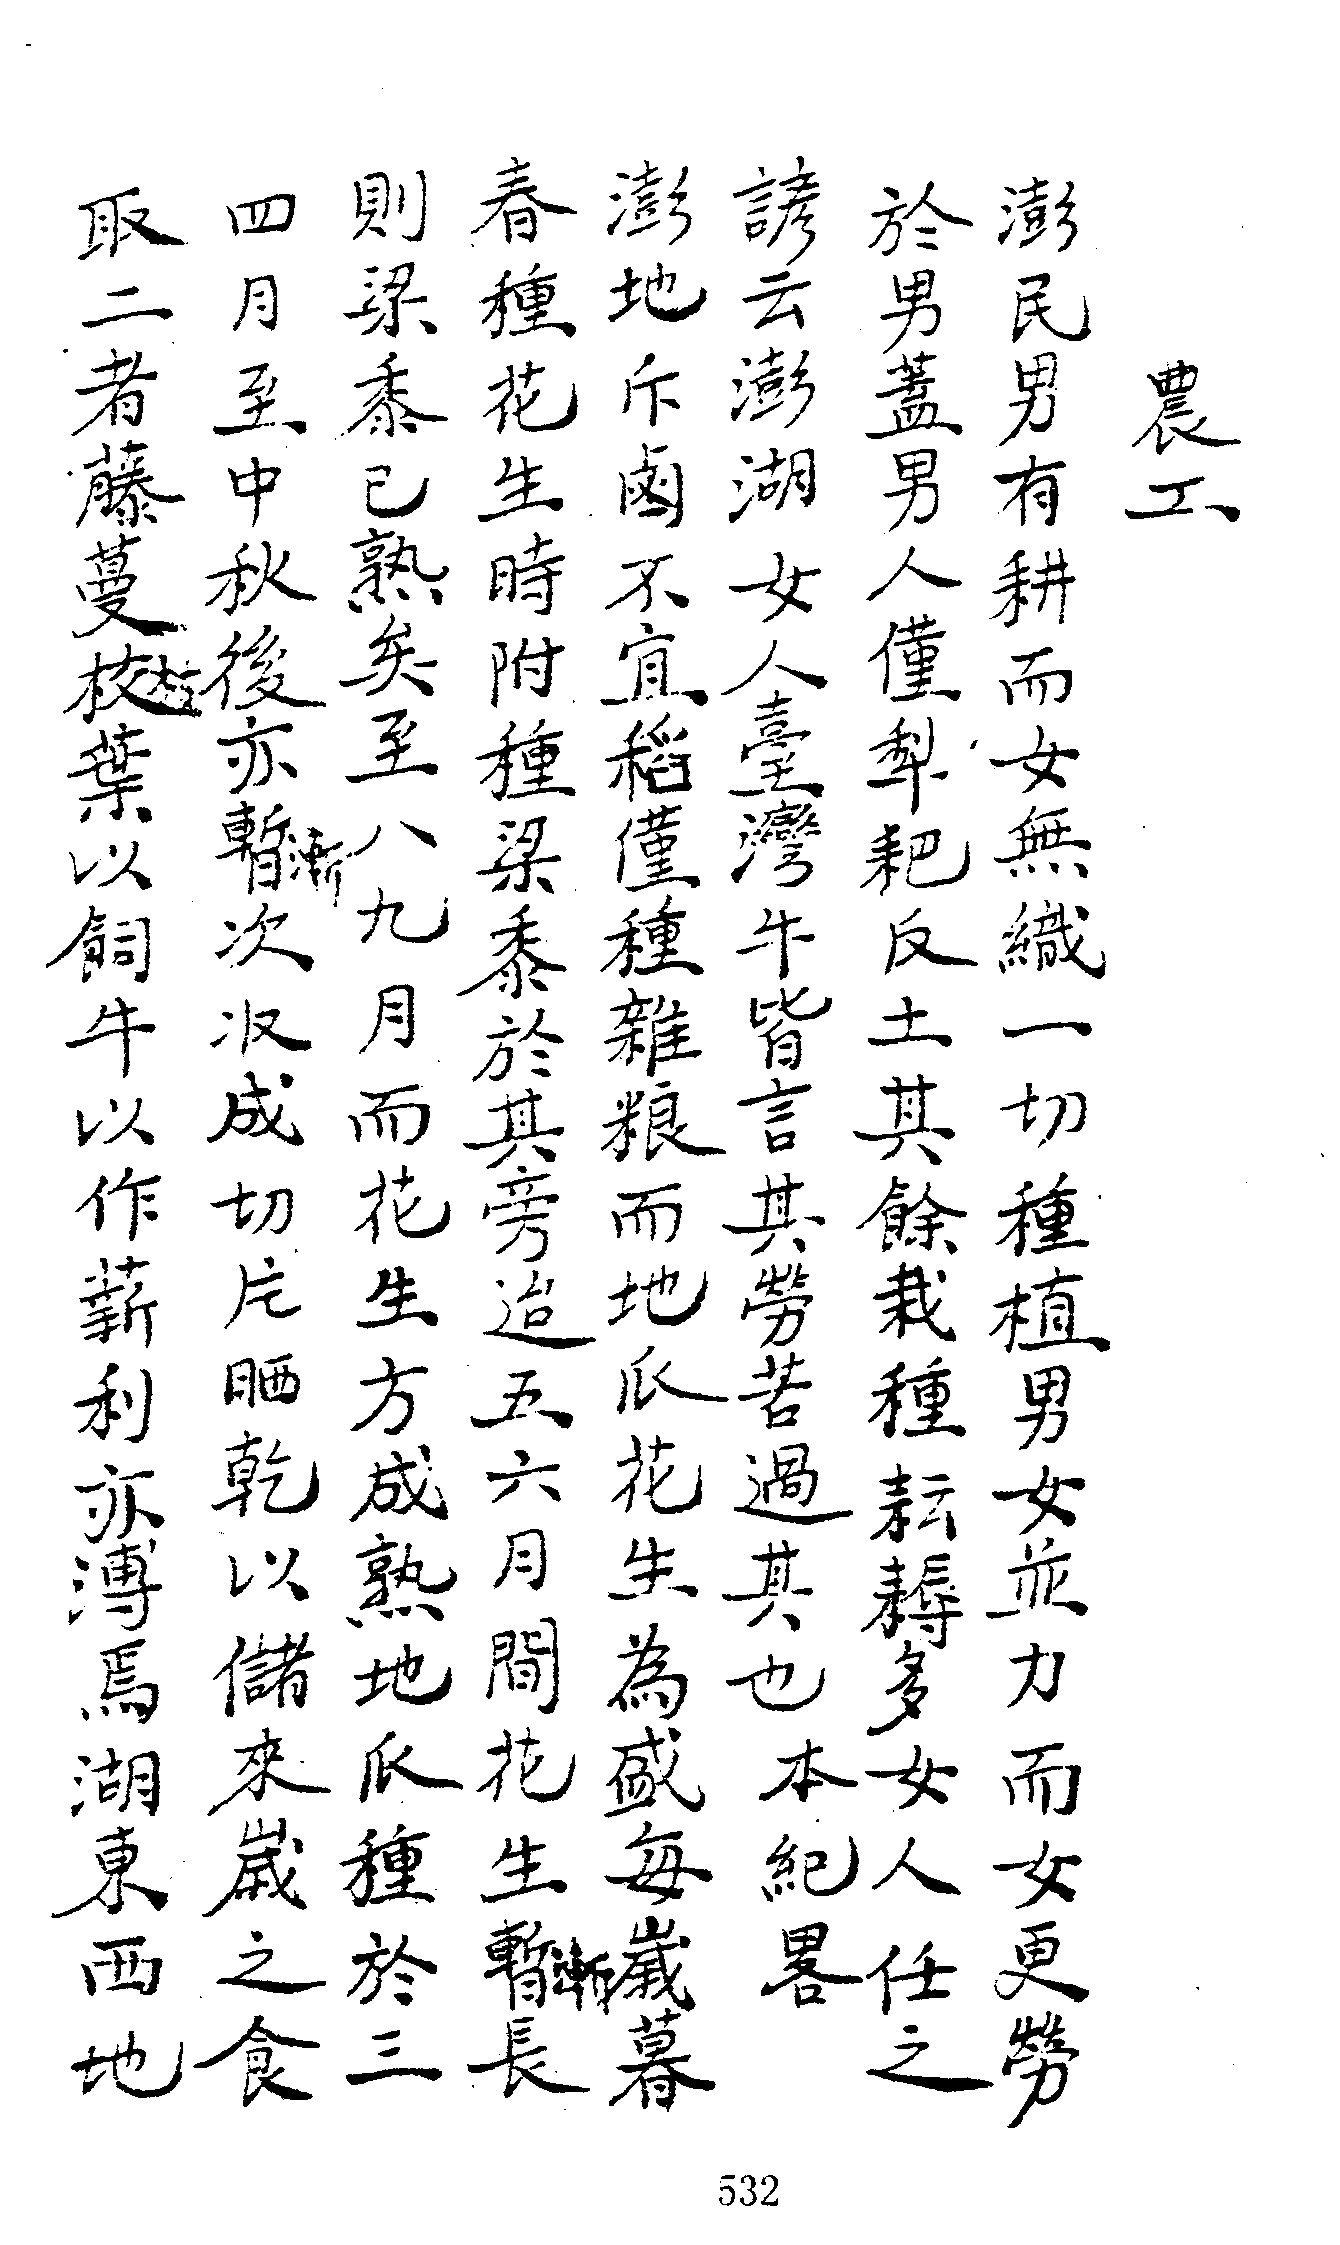 農工
澎民男有耕而女無織一切種植男女並力而女更勞
於男蓋男人僅犁耙反土其餘栽種耘耨多女人任之
諺云澎湖女人臺灣牛皆言其勞苦過其也本紀畧
澎地斥鹵不宜稻僅種雜粮而地瓜花生為盛每歲暮
春種花生時附種梁黍於其旁迨五六月間花生暫漸長
則梁黍已熟矣至八九月而花生方成熟地瓜種於三
四月至中秋後亦暫漸次収成切片晒乾以儲來歲之食
取二者藤蔓枝枝葉以飼牛以作薪利亦溥焉湖東西地
532